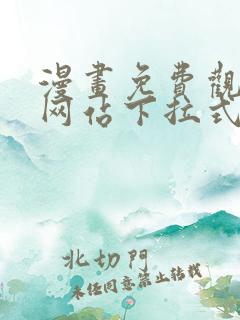 漫畫免費觀
网佔下拉式
北切門
未经同意禁止转载